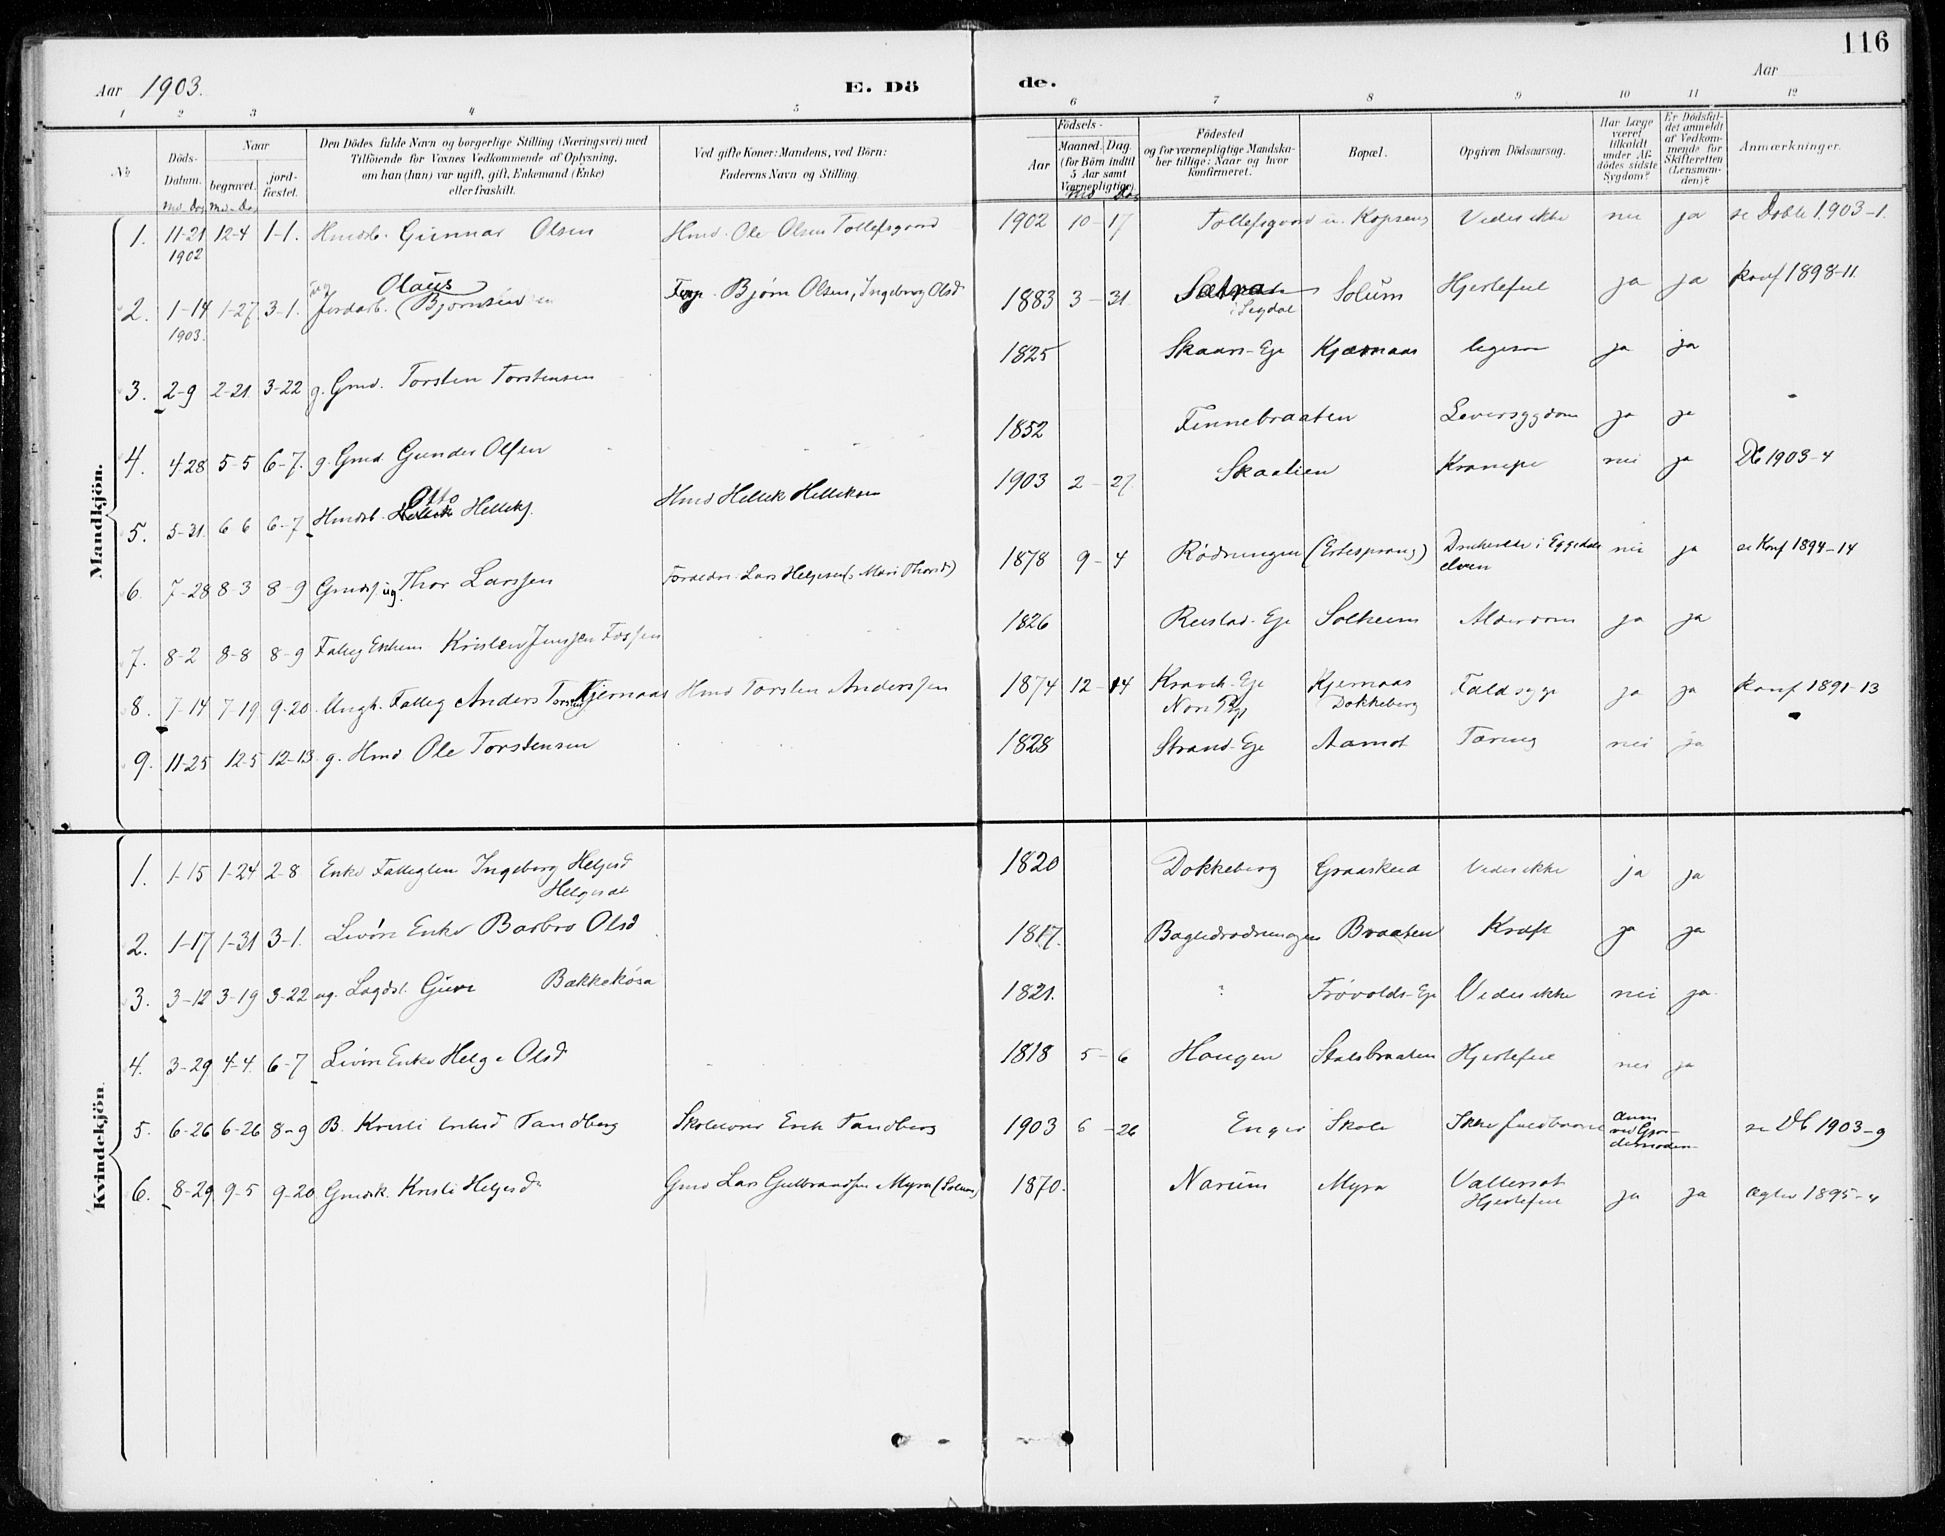 116
Aar 1903. E. Dö de. Aar
1 2 3 4 5 6 7 8 9 10 11 12
No
Döds-Datum.
Naar
begravet.
jord-fæstet.
Den Dödes fulde Navn og borgerlige Stilling (Næringsvei) med
Tilföiende for Voxnes Vedkommende af Oplysning,
om han (hun) var ugift, gift, Enkemand (Enke)
eller fraskilt.
Ved gifte Koner: Mandens, ved Börn:
Faderens Navn og Stilling.
Födsels-
Aar
Maaned. Dag.
(for Börn indtil
5 Aar samt
Værnepligtige).
Födested
og for værnepligtige Mandska-
ber tillige: Naar og hvor
konfirmeret.
Bopæl.
Opgiven Dödsaarsag.
Har Læge
været
tilkaldt
under Af-
dödes sidste
Sygdom?
Er Dödsfal-
det anmeldt
af Vedkom-
mende for
Skifteretten
(Lensman-
den)?
Anmærkninger.
Md. Dag Md - Dag Md Dag
Mandkjön.
1. 11-21 12-4 1-1. Gunnar Olsen Hmd. Ole Olsen Tollefsgaard 1902 10-17 Tollefsgaard u. Kopseng Vides ikke nei ja se Døbte 1903-1.
1902
Olaus
2. 1-14 1-27 3-1. Jordarb. (Bjørnsen Bjørn Olsen, Ingeborg Olsd 1883 3-31 Sætra Solum Hjertefeil ja ja konf 1898-11
1903. i Sigdal
3. 2-9 2-21 3-22 g. Gmd. Torsten Torstensen 1825 Skaars-Eje Kjærnaas ja ja
4. 4-28 5-5 6-7. g. Gmd Gunder Olsen 1852 Finnebraaten Leversygdom ja ja
Otto
5. 5-31 6 6 6-7 Helleks. Hmd Hellek Helleksen 1903 2-27 Skaalien Krampe nei ja Db 1903-4
6. 7-28 8-3 8-9 ug. Thor Larssen Forældre Lars Helgesen (Mari Thorsd) 1878 9-4 Rødningen (Ertesprang) Druknede i Eggedals nei ja se Konf 1894-14
elven
7. 8-2 8-8 8-9 Kristen Jenssen Fossen 1826 Rustad-Eje Solheim Alderdom ja ja
8. 7-14 7-19 9-20 Ungk. Fattig Anders Torstens Kjernaas Hmd Torsten Anderssen 1874 12-14 Kravik-Eje Kjernaas Faldsyge ja ja konf 1891-13
Dokkeberg
9. 11-25 12-5 12-13 g. Hmd Ole Torstensen 1828 Strand-Eje Aamot Tæring nei ja
Kvindekjön.
1. 1-15 1-24 2-8 Enke Fattiglem Ingeborg Helgesd 1820 Dokkeberg Vides ikke ja ja
Helgesdt
2. 1-17 1-31 3-1. Livøre Enke Barbro Olsd 1817. Braaten Kræft ja ja
3. 3-12 3-19 3-22 ug. Lægdsl. Guro Bakkekåsa 1821. ? Frøvolds-Eje Vides ikke nei ja.
4. 3-29 4-4. 6-7 Livøre Enke Helge Olsd 1818 5-6 Haugen Stalsbraaten Hjertefeil nei ja
5. 6-26 6-26 8-9 B. Kristi Eriksd Tandberg Skolelærer Erik Tandberg 1903 6-26 Enger Skole Ikke fuldbaaret anm ved Gjor- demoderen se Db 1903-9
6. 8-29 9-5 9-20 Gmdsk. Kristi Helgesdr Gmd Lars Gulbrandsen Myra (Solum) 1870. Narum Myra Vattersot ja ja ægtev 1895-4
Hjertefeil